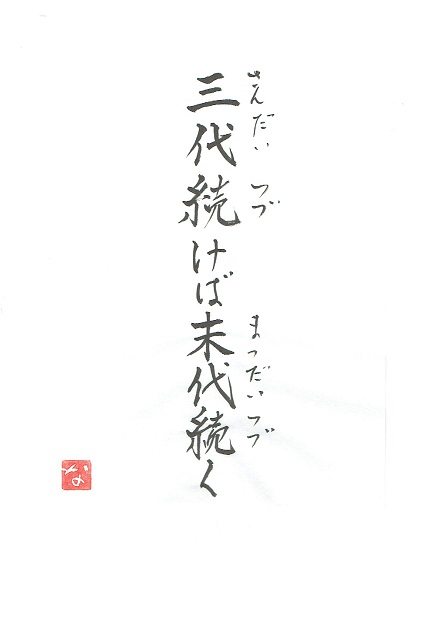 三代続けば末代続く
さんだい つづ まつだい つづ
な